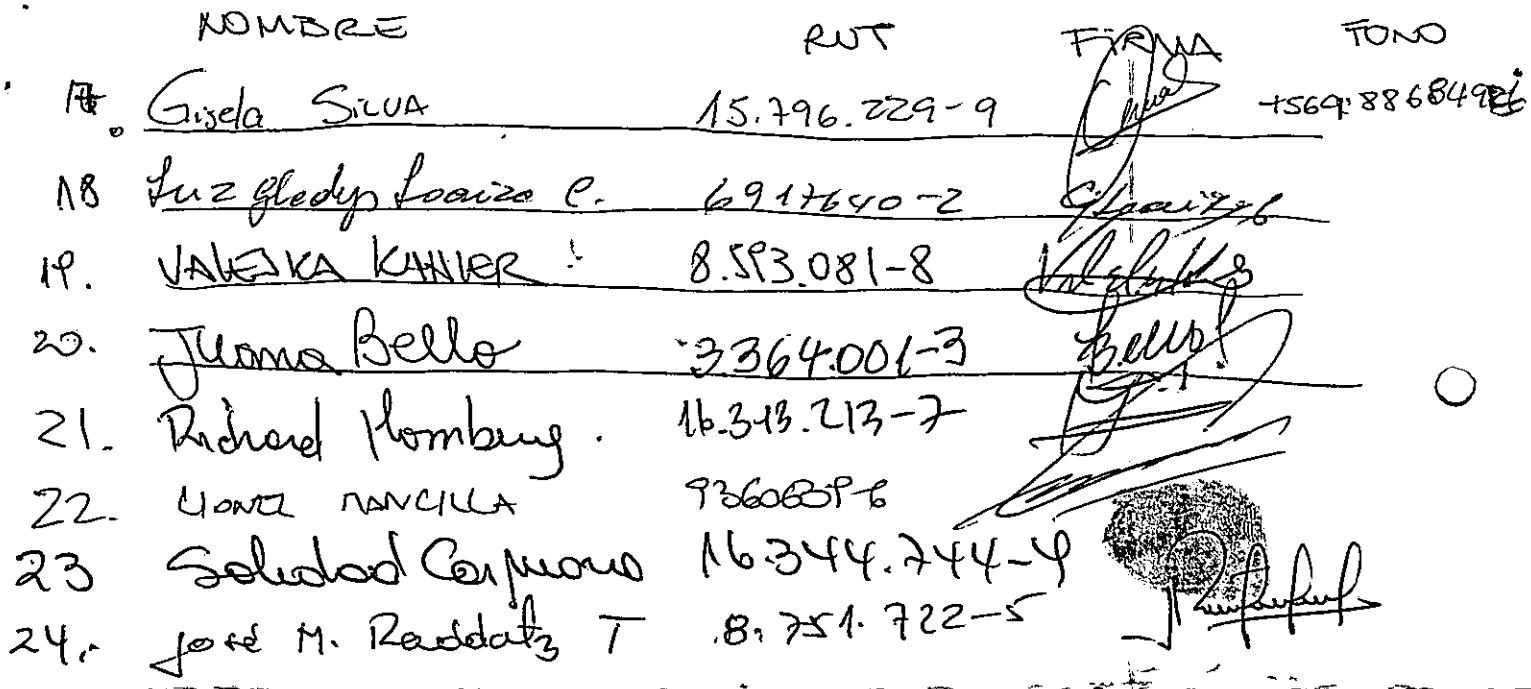 NOMBRE RUT FIRMA FONO
17. Gisela Silva 15.796.229-9
18 Luz Gledys Loaiza C. 6917640-2
19. VALESKA KANVER 8.593.081-8
20. Juana Bello 3364.001-3 Bello
21. Richard Homberg. 16.313.213-7
22. LIONEL MANCILLA
23 Soledad 16.344.744-4
24.- José M. Raddatz T 8.751.722-5